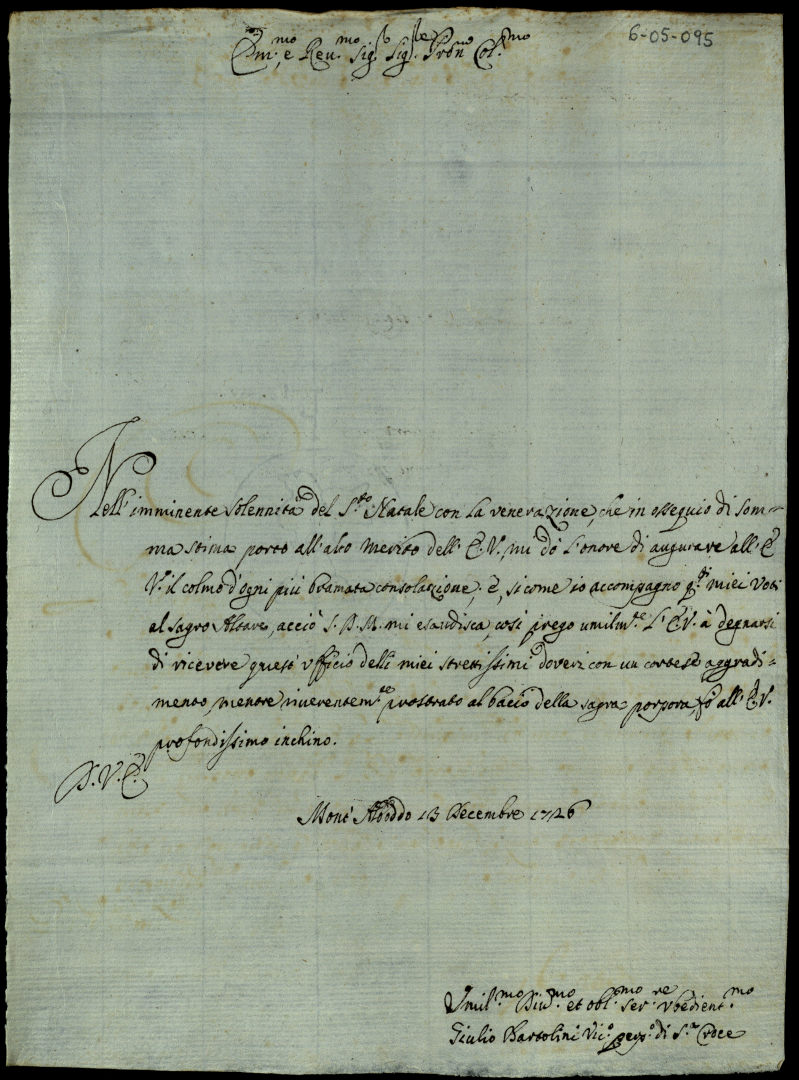 6-05-095
Em.mo e Reu.mo Sig.r Sig.re Pron Col.mo
Nell'imminente Solennità del S.to Natale con la venerazione, che in ossequio di som=
ma stima porto all'alto merito dell'E. V., mi dò l'onore di augurare all'E
V.a il colmo d'ogni più bramata consolazione; è, si come io accompagno q.ti miei Voti
al sagro Altare, acciò S. D. M. mi esaudisca, così prego umilm.te L'E. V. à degnarsi
di ricevere quest'ufficio delli miei strettissimi doveri con un cortese aggradi=
mento, mentre riverentem.te prostrato al bacio della sagra porpora, fò all'E. V.
profondissimo inchino.
D. V. E.
Mont' 13 Decembre 1726
Umil.mo Diu.mo et obl.mo ser.re Vbedient.mo
Giulio Bartolini Vic.o perp.o di S.ta Croce